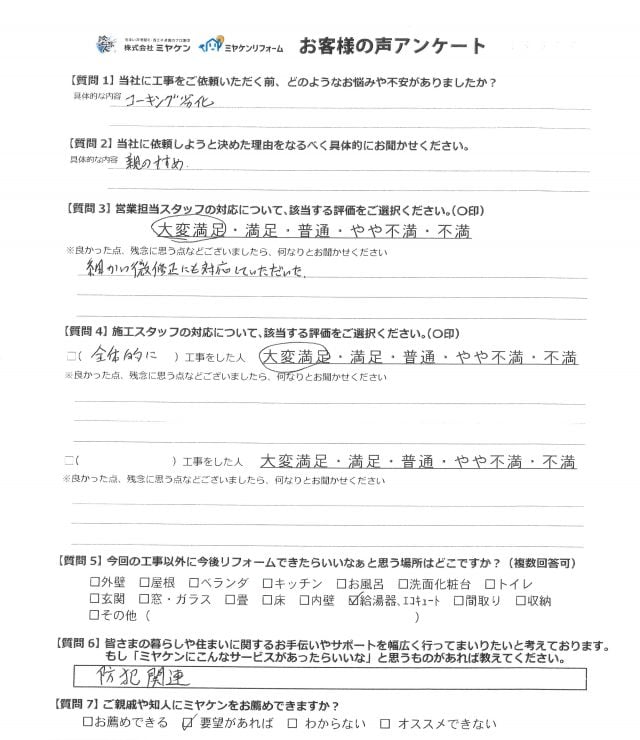 住まいの塗替え・省エネ塗装のプロ集団
株式会社 ミヤケン ミヤケンリフォーム お客様の声アンケート
【質問 1】当社に工事をご依頼いただく前、どのようなお悩みや不安がありましたか？
具体的な内容 コーキング劣化
【質問 2】当社に依頼しようと決めた理由をなるべく具体的にお聞かせください。
具体的な内容 親のすすめ.
【質問 3】営業担当スタッフの対応について、該当する評価をご選択ください。（〇印）
大変満足・満足・普通・やや不満・不満
※良かった点、残念に思う点などございましたら、何なりとお聞かせください
細かい微修正にも対応していただいた.
【質問 4】施工スタッフの対応について、該当する評価をご選択ください。（〇印）
□（ 全体的に ）工事をした人 大変満足・満足・普通・やや不満・不満
※良かった点、残念に思う点などございましたら、何なりとお聞かせください
□（ ）工事をした人 大変満足・満足・普通・やや不満・不満
※良かった点、残念に思う点などございましたら、何なりとお聞かせください
【質問 5】今回の工事以外に今後リフォームできたらいいなぁと思う場所はどこですか？（複数回答可）
□外壁 □屋根 □ベランダ □キッチン □お風呂 □洗面化粧台 □トイレ
□玄関 □窓・ガラス □畳 □床 □内壁 ☑給湯器、エコキュート □間取り □収納
□その他（ ）
【質問 6】皆さまの暮らしや住まいに関するお手伝いやサポートを幅広く行ってまいりたいと考えております。
もし「ミヤケンにこんなサービスがあったらいいな」と思うものがあれば教えてください。
防犯関連
【質問 7】ご親戚や知人にミヤケンをお薦めできますか？
□お薦めできる ☑要望があれば □わからない □オススメできない